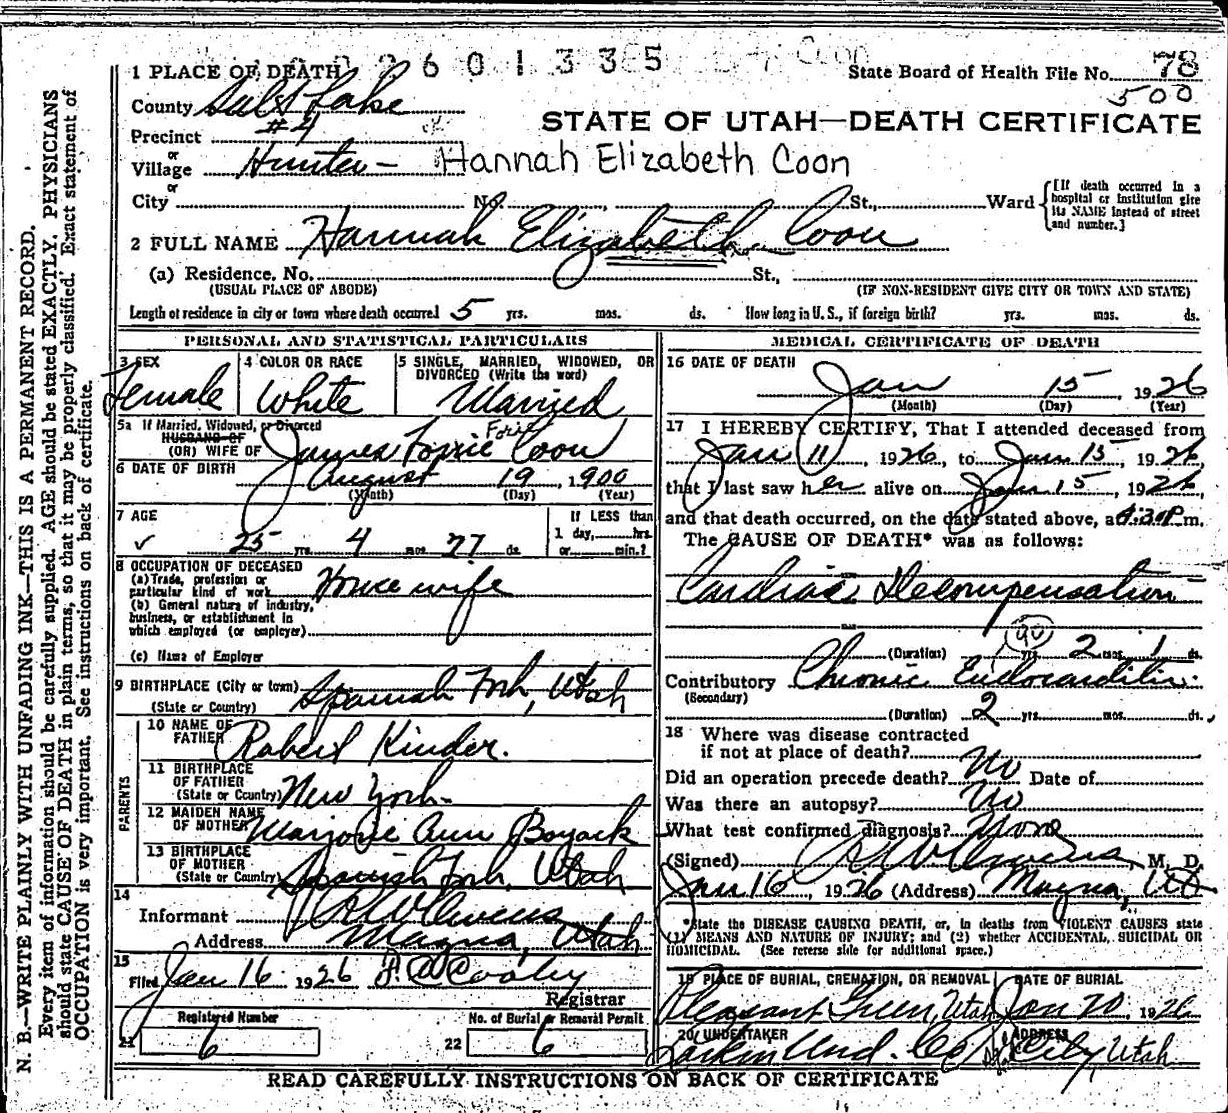 2601335 Coon
1 PLACE OF DEATH
State Board of Health File No. 78
County Salt Lake
500
Precinct #4
STATE OF UTAH—DEATH CERTIFICATE
or
Village Hunter – Hannah Elizabeth Coon
or
City No. , St., Ward
[If death occurred in a hospital or institution give its NAME instead of street and number.]
2 FULL NAME Hannah Elizabeth Coon
(a) Residence, No. St.,
(USUAL PLACE OF ABODE) (IF NON-RESIDENT GIVE CITY OR TOWN AND STATE)
Length of residence in city or town where death occurred 5 yrs. mos. ds. How long in U. S., if foreign birth? yrs. mos. ds.
PERSONAL AND STATISTICAL PARTICULARS
3 SEX 4 COLOR OR RACE 5 SINGLE, MARRIED, WIDOWED, OR DIVORCED (Write the word)
Female White Married
5a If Married, Widowed, or Divorced
HUSBAND OF
(OR) WIFE OF James Coon
6 DATE OF BIRTH August 19, 1900
(Month) (Day) (Year)
7 AGE If LESS than
25 yrs. 4 mos. 27 ds. 1 day, hrs. or min.?
8 OCCUPATION OF DECEASED
(a) Trade, profession or particular kind of work House wife
(b) General nature of industry, business, or establishment in which employed (or employer)
(c) Name of Employer
9 BIRTHPLACE (City or town) Spanish Fork, Utah
(State or Country)
PARENTS
10 NAME OF FATHER Robert Kinder.
11 BIRTHPLACE OF FATHER
(State or Country) New York
12 MAIDEN NAME OF MOTHER Marjorie Ann Boyack
13 BIRTHPLACE OF MOTHER
(State or Country) Spanish Fork, Utah
14
Informant
Address Magna, Utah
15
Filed Jan 16 1926
Registrar
Registered Number No. of Burial or Removal Permit
21 6 22 6
MEDICAL CERTIFICATE OF DEATH
16 DATE OF DEATH
Jan 15 1926
(Month) (Day) (Year)
17 I HEREBY CERTIFY, That I attended deceased from
Jan 11, 1926, to Jan 15, 1926,
that I last saw her alive on Jan 15, 1926,
and that death occurred, on the date stated above, at 4:30 P. m.
The CAUSE OF DEATH* was as follows:
Cardiac Decompensation
90
(Duration) yrs. 2 mos. 1 ds.
Contributory Chronic Endocarditis.
(Secondary)
(Duration) 2 yrs. mos. ds.
18 Where was disease contracted
if not at place of death?
Did an operation precede death? No Date of
Was there an autopsy? No
What test confirmed diagnosis? None
(Signed) M. D.
Jan 16, 1926 (Address) Magna, Ut
*State the DISEASE CAUSING DEATH, or, in deaths from VIOLENT CAUSES state
(1) MEANS AND NATURE OF INJURY; and (2) whether ACCIDENTAL, SUICIDAL OR
HOMICIDAL. (See reverse side for additional space.)
19 PLACE OF BURIAL, CREMATION, OR REMOVAL DATE OF BURIAL
Pleasant Green, Utah Jan 20, 1926
20 UNDERTAKER ADDRESS
Larkin Und. Co City, Utah
READ CAREFULLY INSTRUCTIONS ON BACK OF CERTIFICATE
N. B.—WRITE PLAINLY WITH UNFADING INK—THIS IS A PERMANENT RECORD.
Every item of information should be carefully supplied. AGE should be stated EXACTLY. PHYSICIANS
should state CAUSE OF DEATH in plain terms, so that it may be properly classified. Exact statement of
OCCUPATION is very important. See instructions on back of certificate.